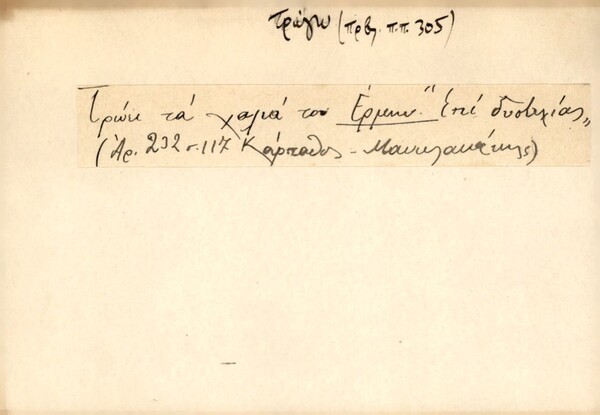 τρώγω (πρβλ. π.π. 305)
Τρώει τά χαμιά του Ἑρμην." Ἐπί δυστυχίας„
(Ἀρ. 232 σ. 117 Κάρπαθος - Μανωλακάκης)